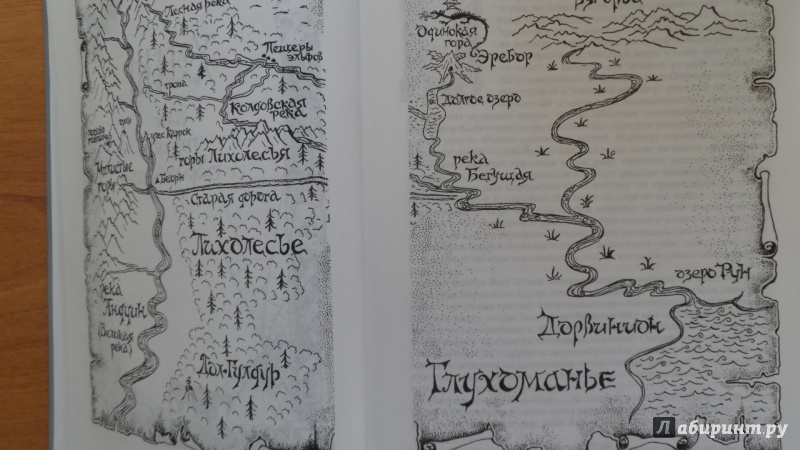 Лесная река
Пещеры
эльфов
тропа
Колдовская
река
утес Каррок
горы Лихолесья
Мглистые
горы
Беорн
Старая дорога
Лихолесье
река
Андуин
(Великая
река)
Дол-Гулдур
Одинокая
гора
Эребор
Долгое озеро
река
Бегущая
озеро Рун
Дорвинион
Глухоманье
Лабиринт.ру